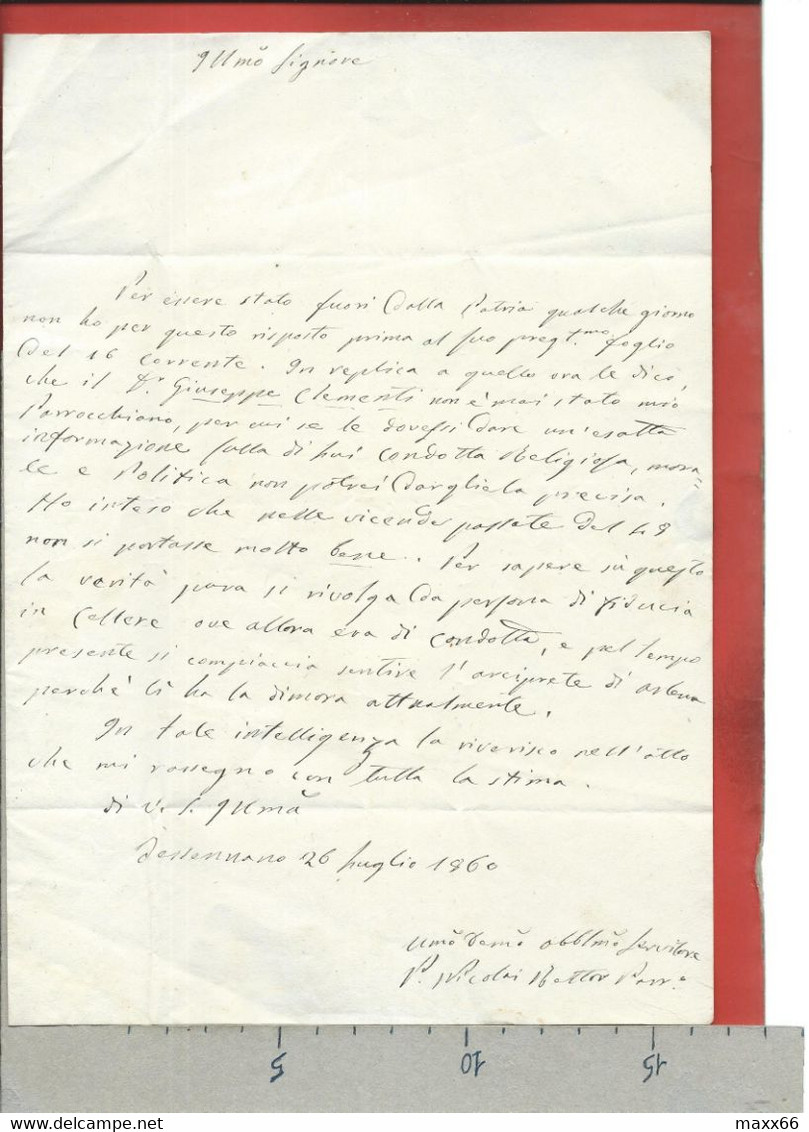 Illmo Signore
Per essere stato fuori dalla Patria qualche giorno
non ho per questo risposto prima al suo pregt.mo foglio
del 16 corrente. In replica a quello ora le dico,
che il Dr. Giuseppe Clementi non è mai stato mio
Parrocchiano, per cui se le dovessi dare un'esatta
informazione sulla di lui condotta Religiosa, mora=
le e Politica non potrei dargliela precisa.
Ho inteso che nelle vicende passate del 49
non si portasse molto bene. Per sapere su questo
la verità pura si rivolga da persona di fiducia
in Cellere ove allora era di condotta, e pel tempo
presente si compiaccia sentire l'arciprete di
perchè lì ha la dimora attualmente.
In tale intelligenza la riverisco nell'atto
che mi rassegno con tutta la stima.
di V. S. Illma
Tessennano 26 luglio 1860
Umo Demo obblmo Servitore
P. Nicolai Rettor Parr.o
5 10 15
maxx66